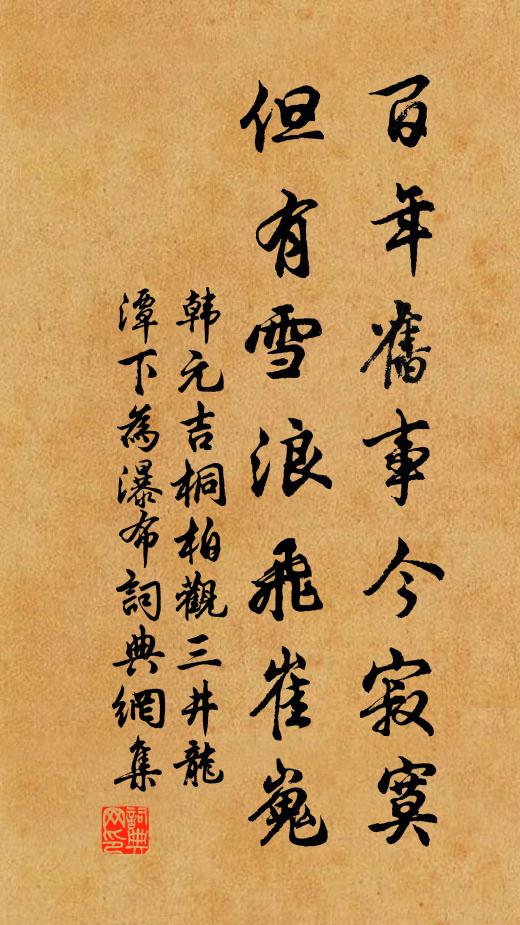 百年舊事今寂寞
但有雪浪飛崔嵬
韩元吉桐柏觀三井龍
潭下為瀑布詞典網集
詞典网印